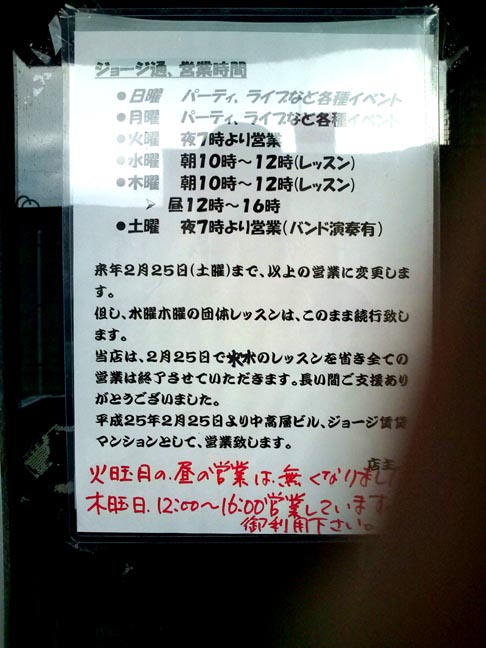 ジョージ通、営業時間
●日曜 パーティ、ライブなど各種イベント
●月曜 パーティ、ライブなど各種イベント
●火曜 夜7時より営業
●水曜 朝10時～12時(レッスン)
●木曜 朝10時～12時(レッスン)
➢ 昼12時～16時
●土曜 夜7時より営業(バンド演奏有)
来年2月25日(土曜)まで、以上の営業に変更しま
す。
但し、水曜木曜の団体レッスンは、このまま続行致し
ます。
当店は、2月25日で火水のレッスンを省き全ての
営業は終了させていただきます。長い間ご支援あり
がとうございました。
平成25年2月25日より中高屋ビル、ジョージ賃貸
マンションとして、営業致します。
店主
火曜日の昼の営業は無くなりまし
木曜日.12:00～16:00営業しています
御利用下さい。